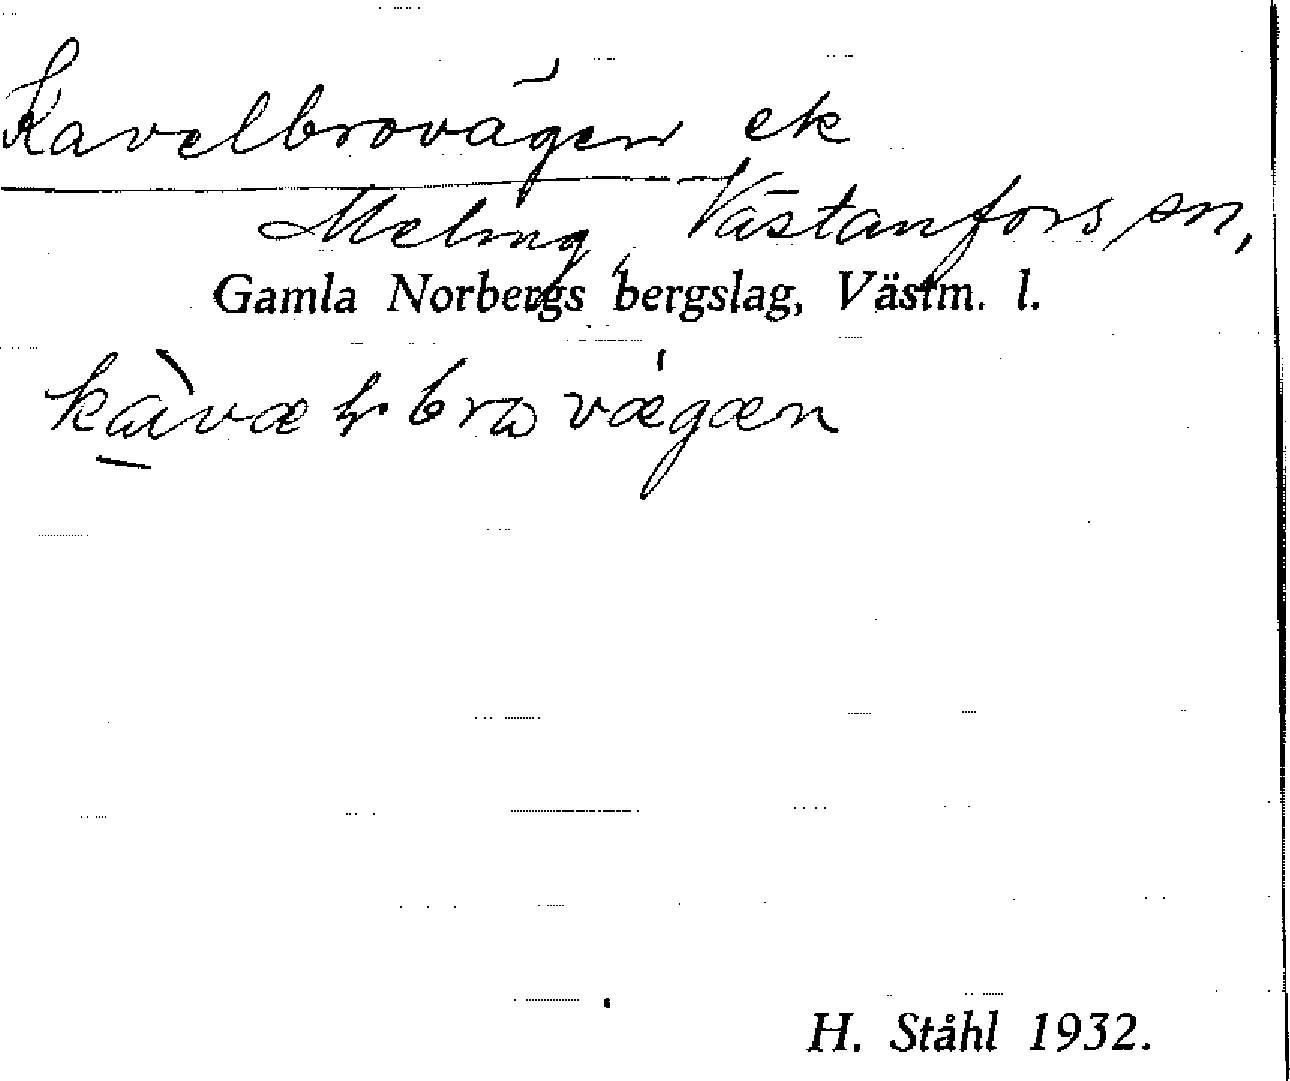 Kavelbrovägen ek
Meling, Västanfors sn,
Gamla Norbergs bergslag, Västm. l.
vægæn
H. Ståhl 1932.